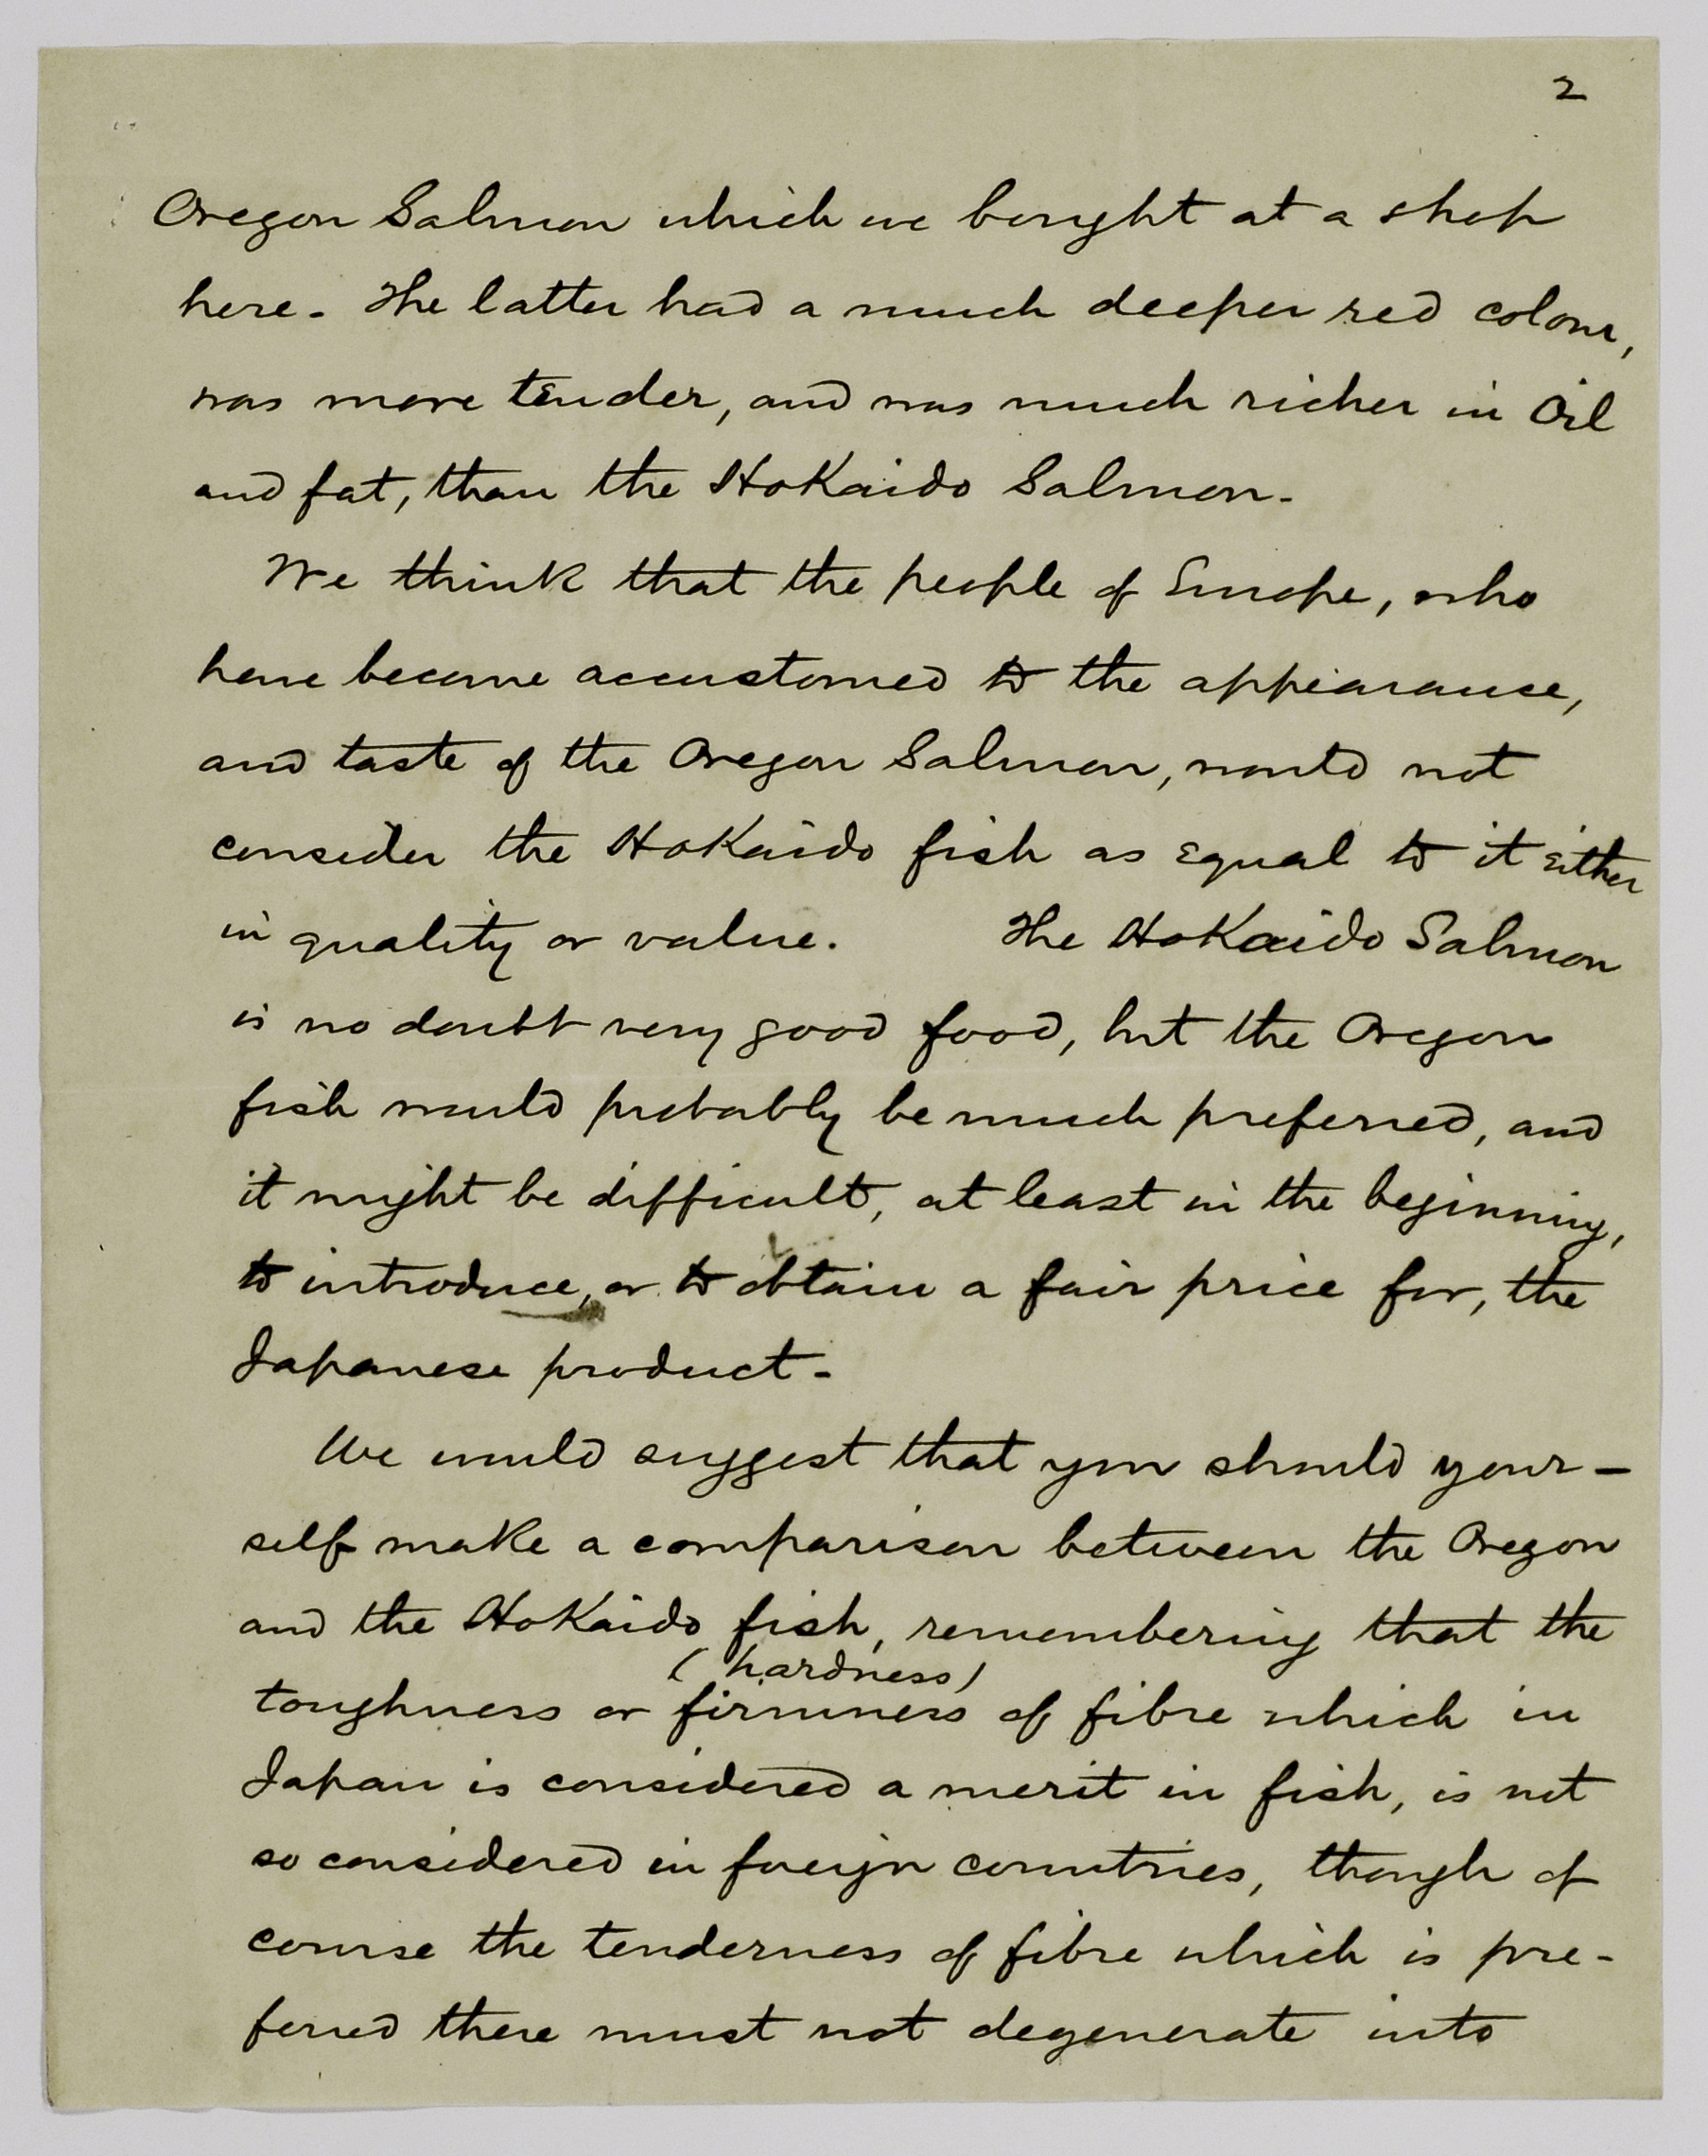 2
Oregon Salmon which we bought at a shop
here. The latter had a much deeper red colour,
was more tender, and was much richer in Oil
and fat, than the Hokaido Salmon.
We think that the people of Europe, who
have become accustomed to the appearance,
and taste of the Oregon Salmon, would not
consider the Hokaido fish as equal to it either
in quality or value. The Hokaido Salmon
is no doubt very good food, but the Oregon
fish would probably be much preferred, and
it might be difficult, at least in the beginning,
to introduce, or to obtain a fair price for, the
Japanese product.
We would suggest that you should your-
self make a comparison between the Oregon
and the Hokaido fish, remembering that the
(hardness)
toughness or firmness of fibre which in
Japan is considered a merit in fish, is not
so considered in foreign countries, though of
course the tenderness of fibre which is pre-
ferred there must not degenerate into